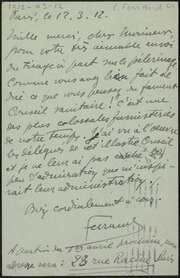 1912-03-12
C. Ferrand
Paris, le 12. 3. 12.
Mille merci, cher Monsieur,
pour votre très aimable envoi
du tirage à part sur le pèlerinage.
Comme vous avez bien fait de
dire ce que vous pensez du fameux
Conseil sanitaire ! C'est une
des plus colossales fumisteries
de notre temps. J'ai vu à l'œuvre
les délégués de cet illustre Conseil
et je ne leur ai pas caché le
peu d'admiration que m'inspi-
rait leur administration.
Bien cordialement à vous
Ferrand
A partir du 15 avril prochain, mon
adresse sera : 23 rue